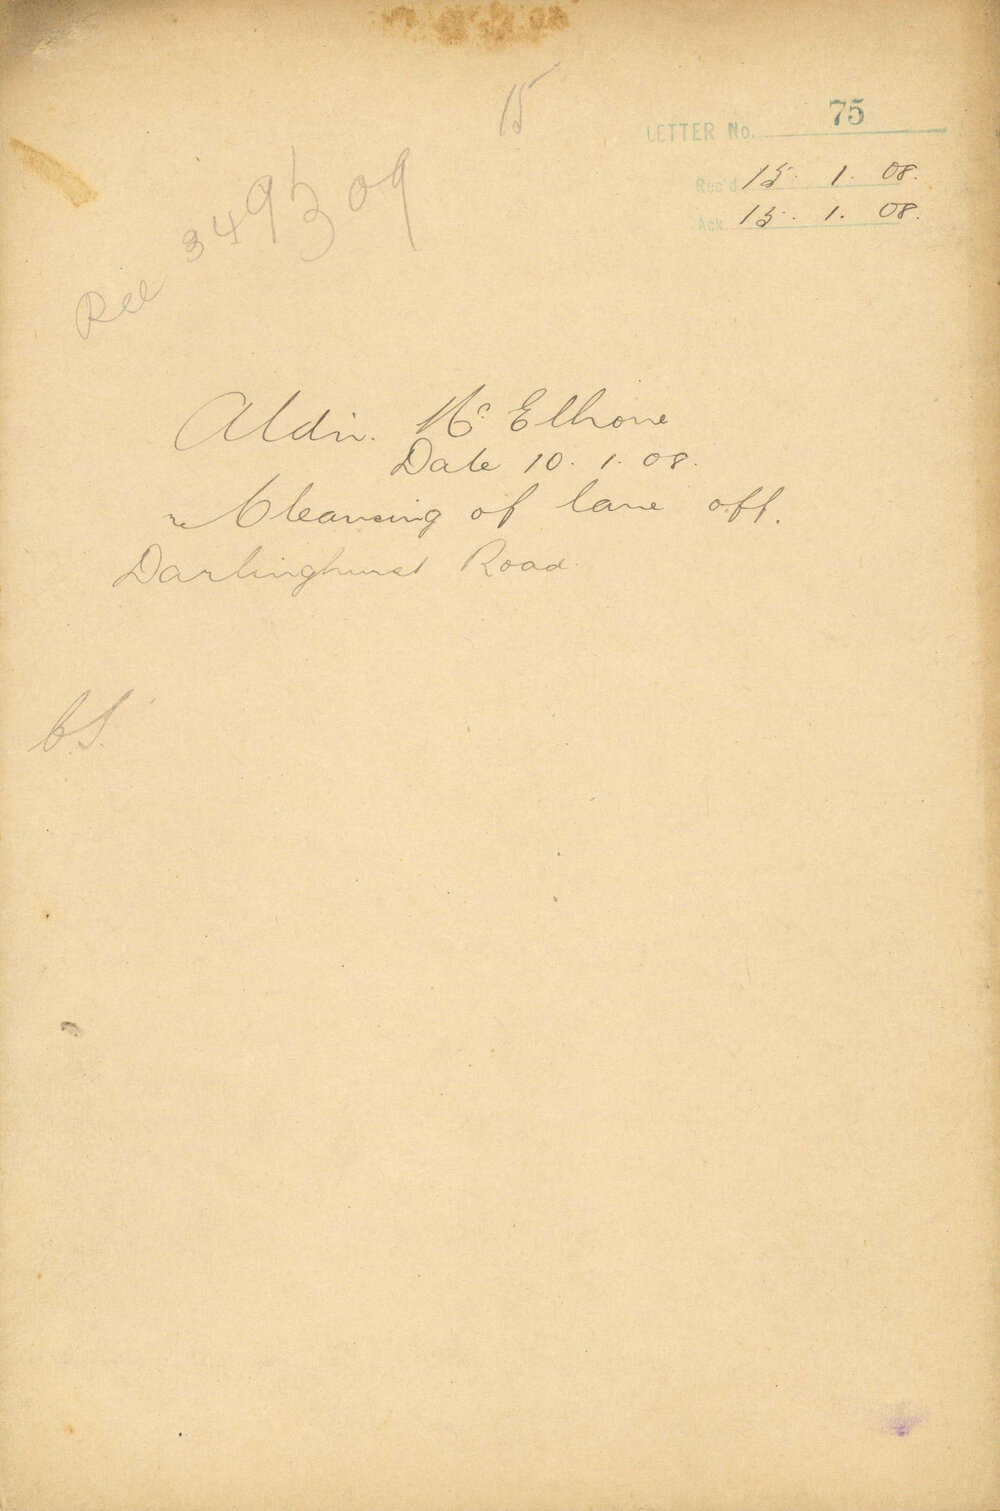 15
LETTER No. 75
Rec'd 15. 1. 08.
Ack. 15. 1. 08.
3495 09
Aldn. Mc Elhone
Date 10. 1. 08.
re Cleansing of lane off.
Darlinghurst Road
C.S.